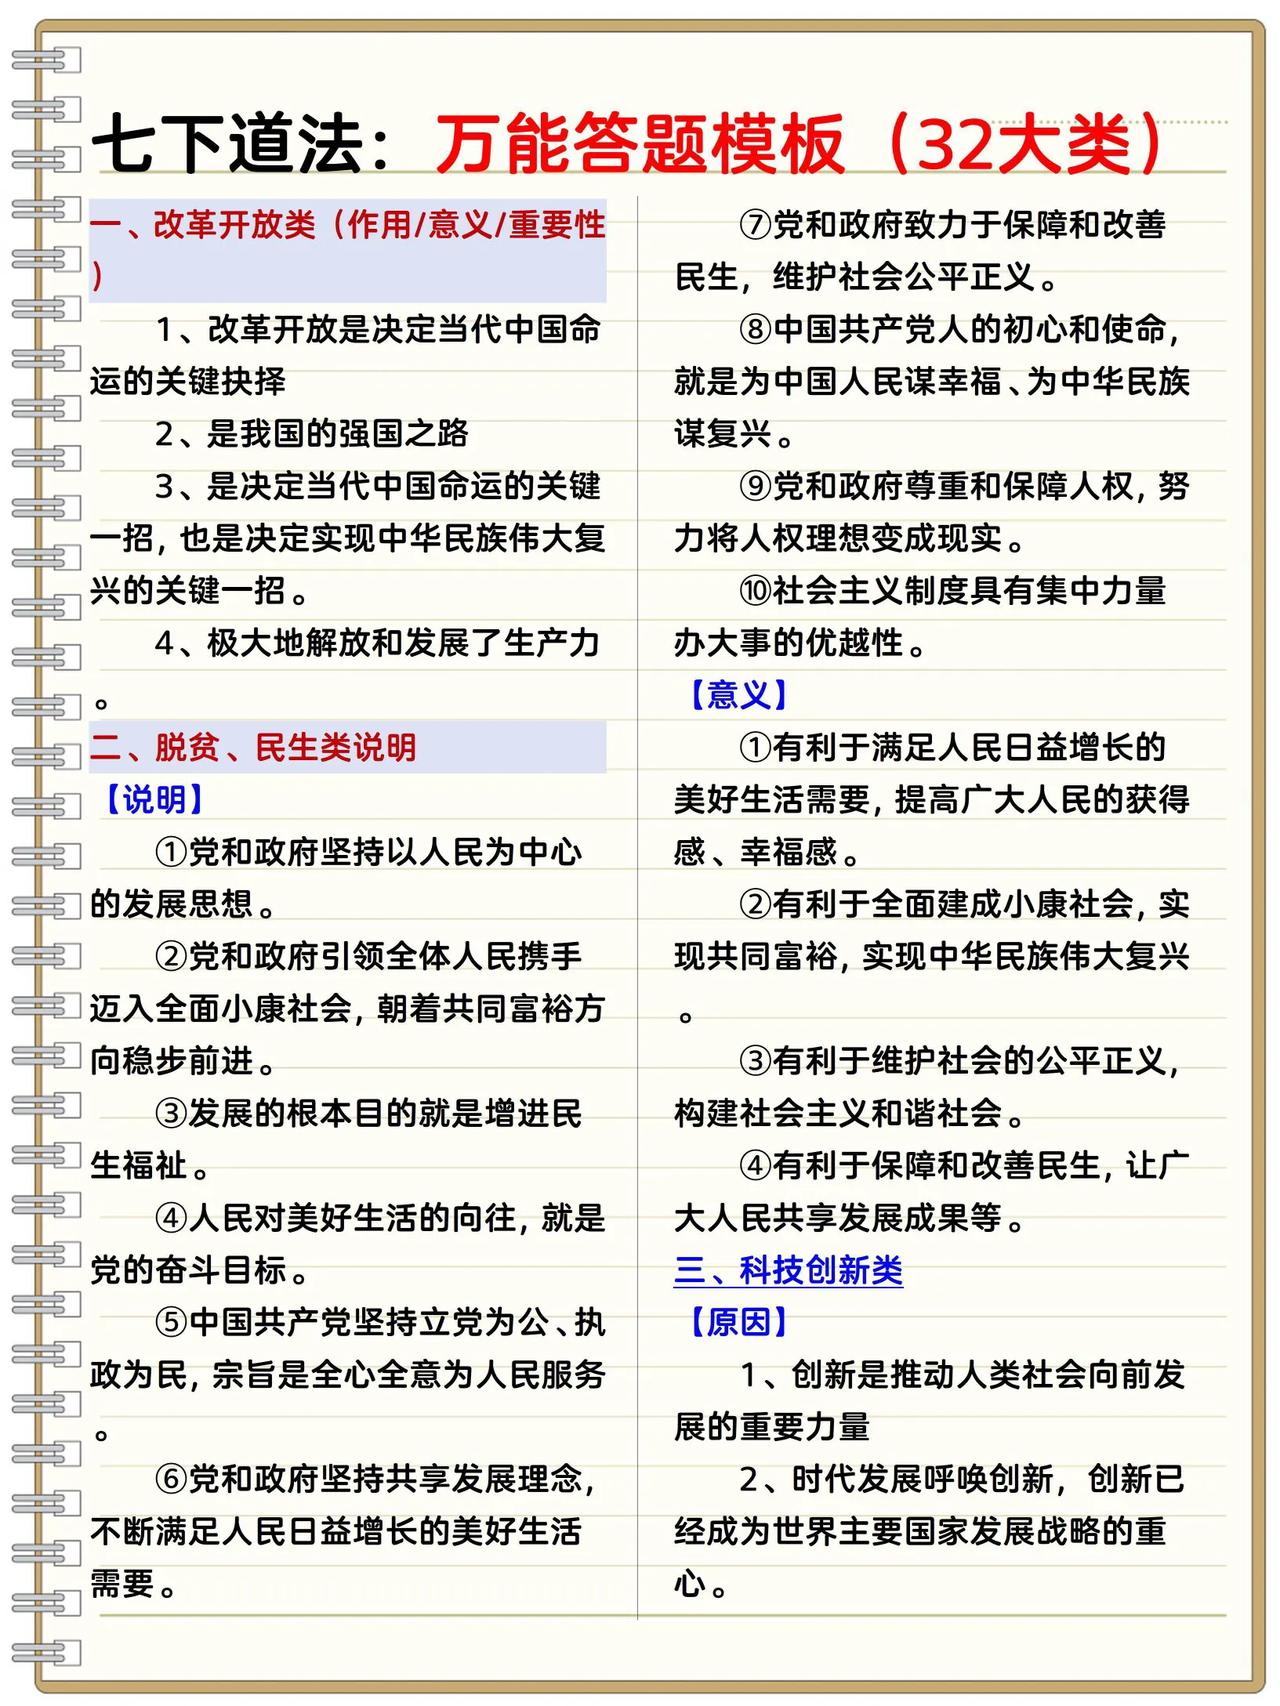 七下道法：万能答题模板（32大类）
一、改革开放类（作用/意义/重要性
）
1、改革开放是决定当代中国命
运的关键抉择
2、是我国的强国之路
3、是决定当代中国命运的关键
一招，也是决定实现中华民族伟大复
兴的关键一招。
4、极大地解放和发展了生产力
。
二、脱贫、民生类说明
【说明】
①党和政府坚持以人民为中心
的发展思想。
②党和政府引领全体人民携手
迈入全面小康社会，朝着共同富裕方
向稳步前进。
③发展的根本目的就是增进民
生福祉。
④人民对美好生活的向往，就是
党的奋斗目标。
⑤中国共产党坚持立党为公、执
政为民，宗旨是全心全意为人民服务
。
⑥党和政府坚持共享发展理念，
不断满足人民日益增长的美好生活
需要。
⑦党和政府致力于保障和改善
民生，维护社会公平正义。
⑧中国共产党人的初心和使命，
就是为中国人民谋幸福、为中华民族
谋复兴。
⑨党和政府尊重和保障人权，努
力将人权理想变成现实。
⑩社会主义制度具有集中力量
办大事的优越性。
【意义】
①有利于满足人民日益增长的
美好生活需要，提高广大人民的获得
感、幸福感。
②有利于全面建成小康社会，实
现共同富裕，实现中华民族伟大复兴
。
③有利于维护社会的公平正义，
构建社会主义和谐社会。
④有利于保障和改善民生，让广
大人民共享发展成果等。
三、科技创新类
【原因】
1、创新是推动人类社会向前发
展的重要力量
2、时代发展呼唤创新，创新已
经成为世界主要国家发展战略的重
心。